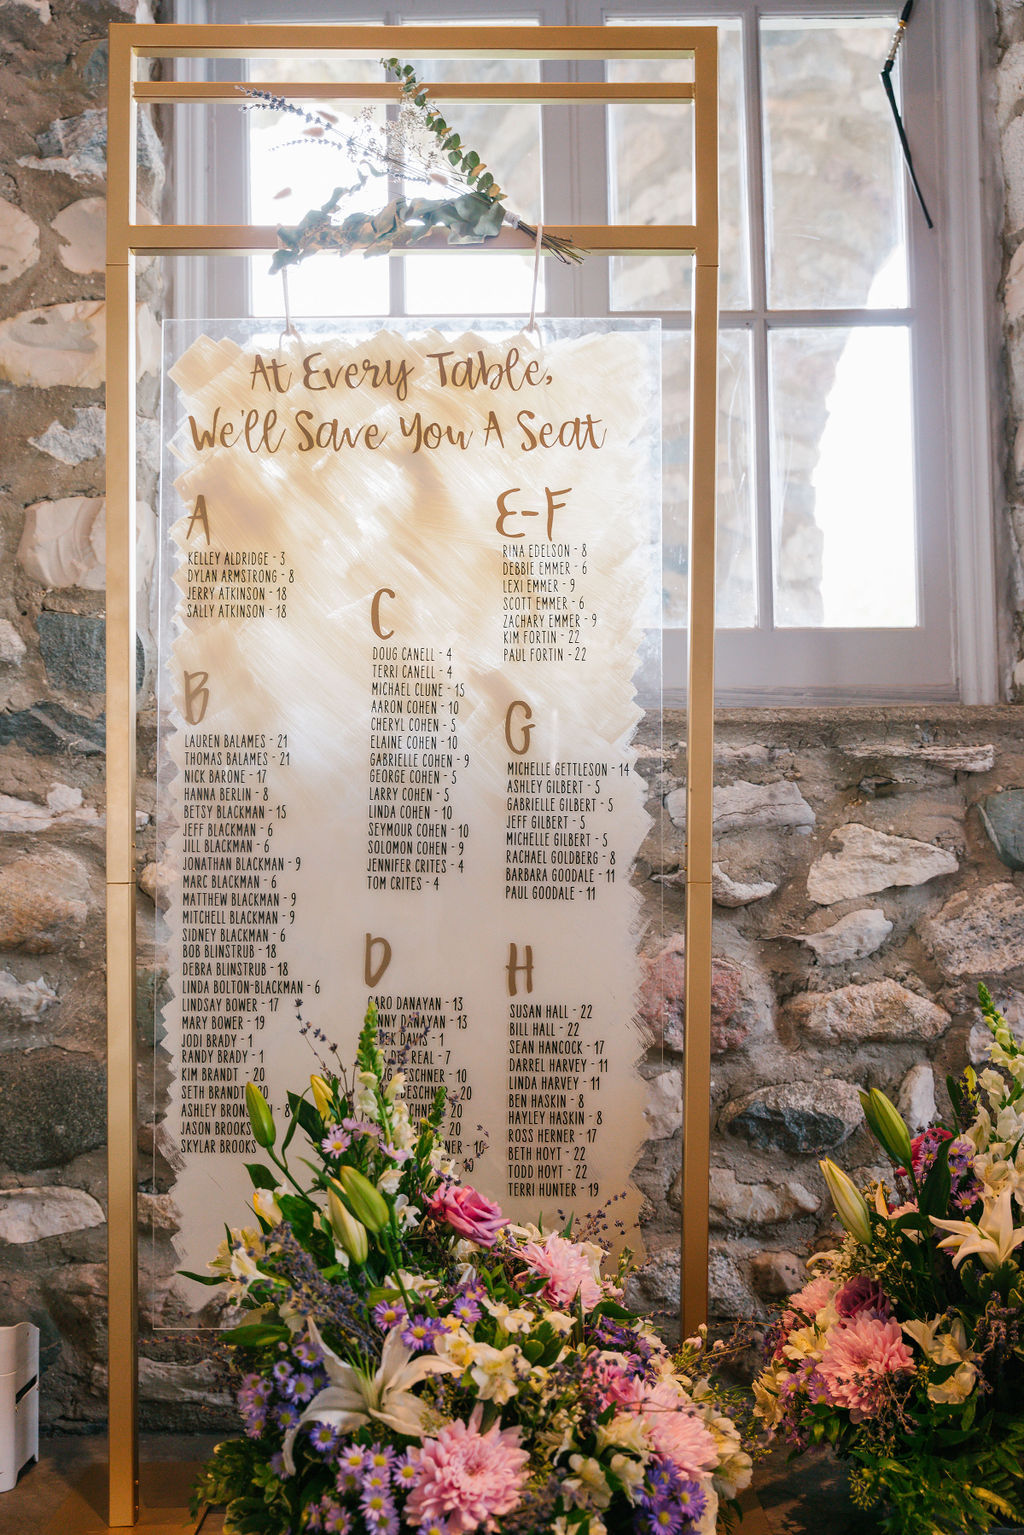 At Every Table,
We'll Save You A Seat
A
KELLEY ALDRIDGE - 3
DYLAN ARMSTRONG - 8
JERRY ATKINSON - 18
SALLY ATKINSON - 18
B
LAUREN BALAMES - 21
THOMAS BALAMES - 21
NICK BARONE - 17
HANNA BERLIN - 8
BETSY BLACKMAN - 15
JEFF BLACKMAN - 6
JILL BLACKMAN - 6
JONATHAN BLACKMAN - 9
MARC BLACKMAN - 6
MATTHEW BLACKMAN - 9
MITCHELL BLACKMAN - 9
SIDNEY BLACKMAN - 6
BOB BLINSTRUB - 18
DEBRA BLINSTRUB - 18
LINDA BOLTON-BLACKMAN - 6
LINDSAY BOWER - 17
MARY BOWER - 19
JODI BRADY - 1
RANDY BRADY - 1
KIM BRANDT - 20
SETH BRANDT 20
ASHLEY - 8
JASON BROOKS
SKYLAR BROOKS
C
DOUG CANELL - 4
TERRI CANELL - 4
MICHAEL CLUNE - 15
AARON COHEN - 10
CHERYL COHEN - 5
ELAINE COHEN - 10
GABRIELLE COHEN - 9
GEORGE COHEN - 5
LARRY COHEN - 5
LINDA COHEN - 10
SEYMOUR COHEN - 10
SOLOMON COHEN - 9
JENNIFER CRITES - 4
TOM CRITES - 4
D
CARO DANAYAN - 13
DANAYAN - 13
DAVIS - 1
REAL - 7
DESCHNER - 10
DESCHNER - 20
- 20
- 20
- 10
- 10
E-F
RINA EDELSON - 8
DEBBIE EMMER - 6
LEXI EMMER - 9
SCOTT EMMER - 6
ZACHARY EMMER - 9
KIM FORTIN - 22
PAUL FORTIN - 22
G
MICHELLE GETTLESON - 14
ASHLEY GILBERT - 5
GABRIELLE GILBERT - 5
JEFF GILBERT - 5
MICHELLE GILBERT - 5
RACHAEL GOLDBERG - 8
BARBARA GOODALE - 11
PAUL GOODALE - 11
H
SUSAN HALL - 22
BILL HALL - 22
SEAN HANCOCK - 17
DARREL HARVEY - 11
LINDA HARVEY - 11
BEN HASKIN - 8
HAYLEY HASKIN - 8
ROSS HERNER - 17
BETH HOYT - 22
TODD HOYT - 22
TERRI HUNTER - 19